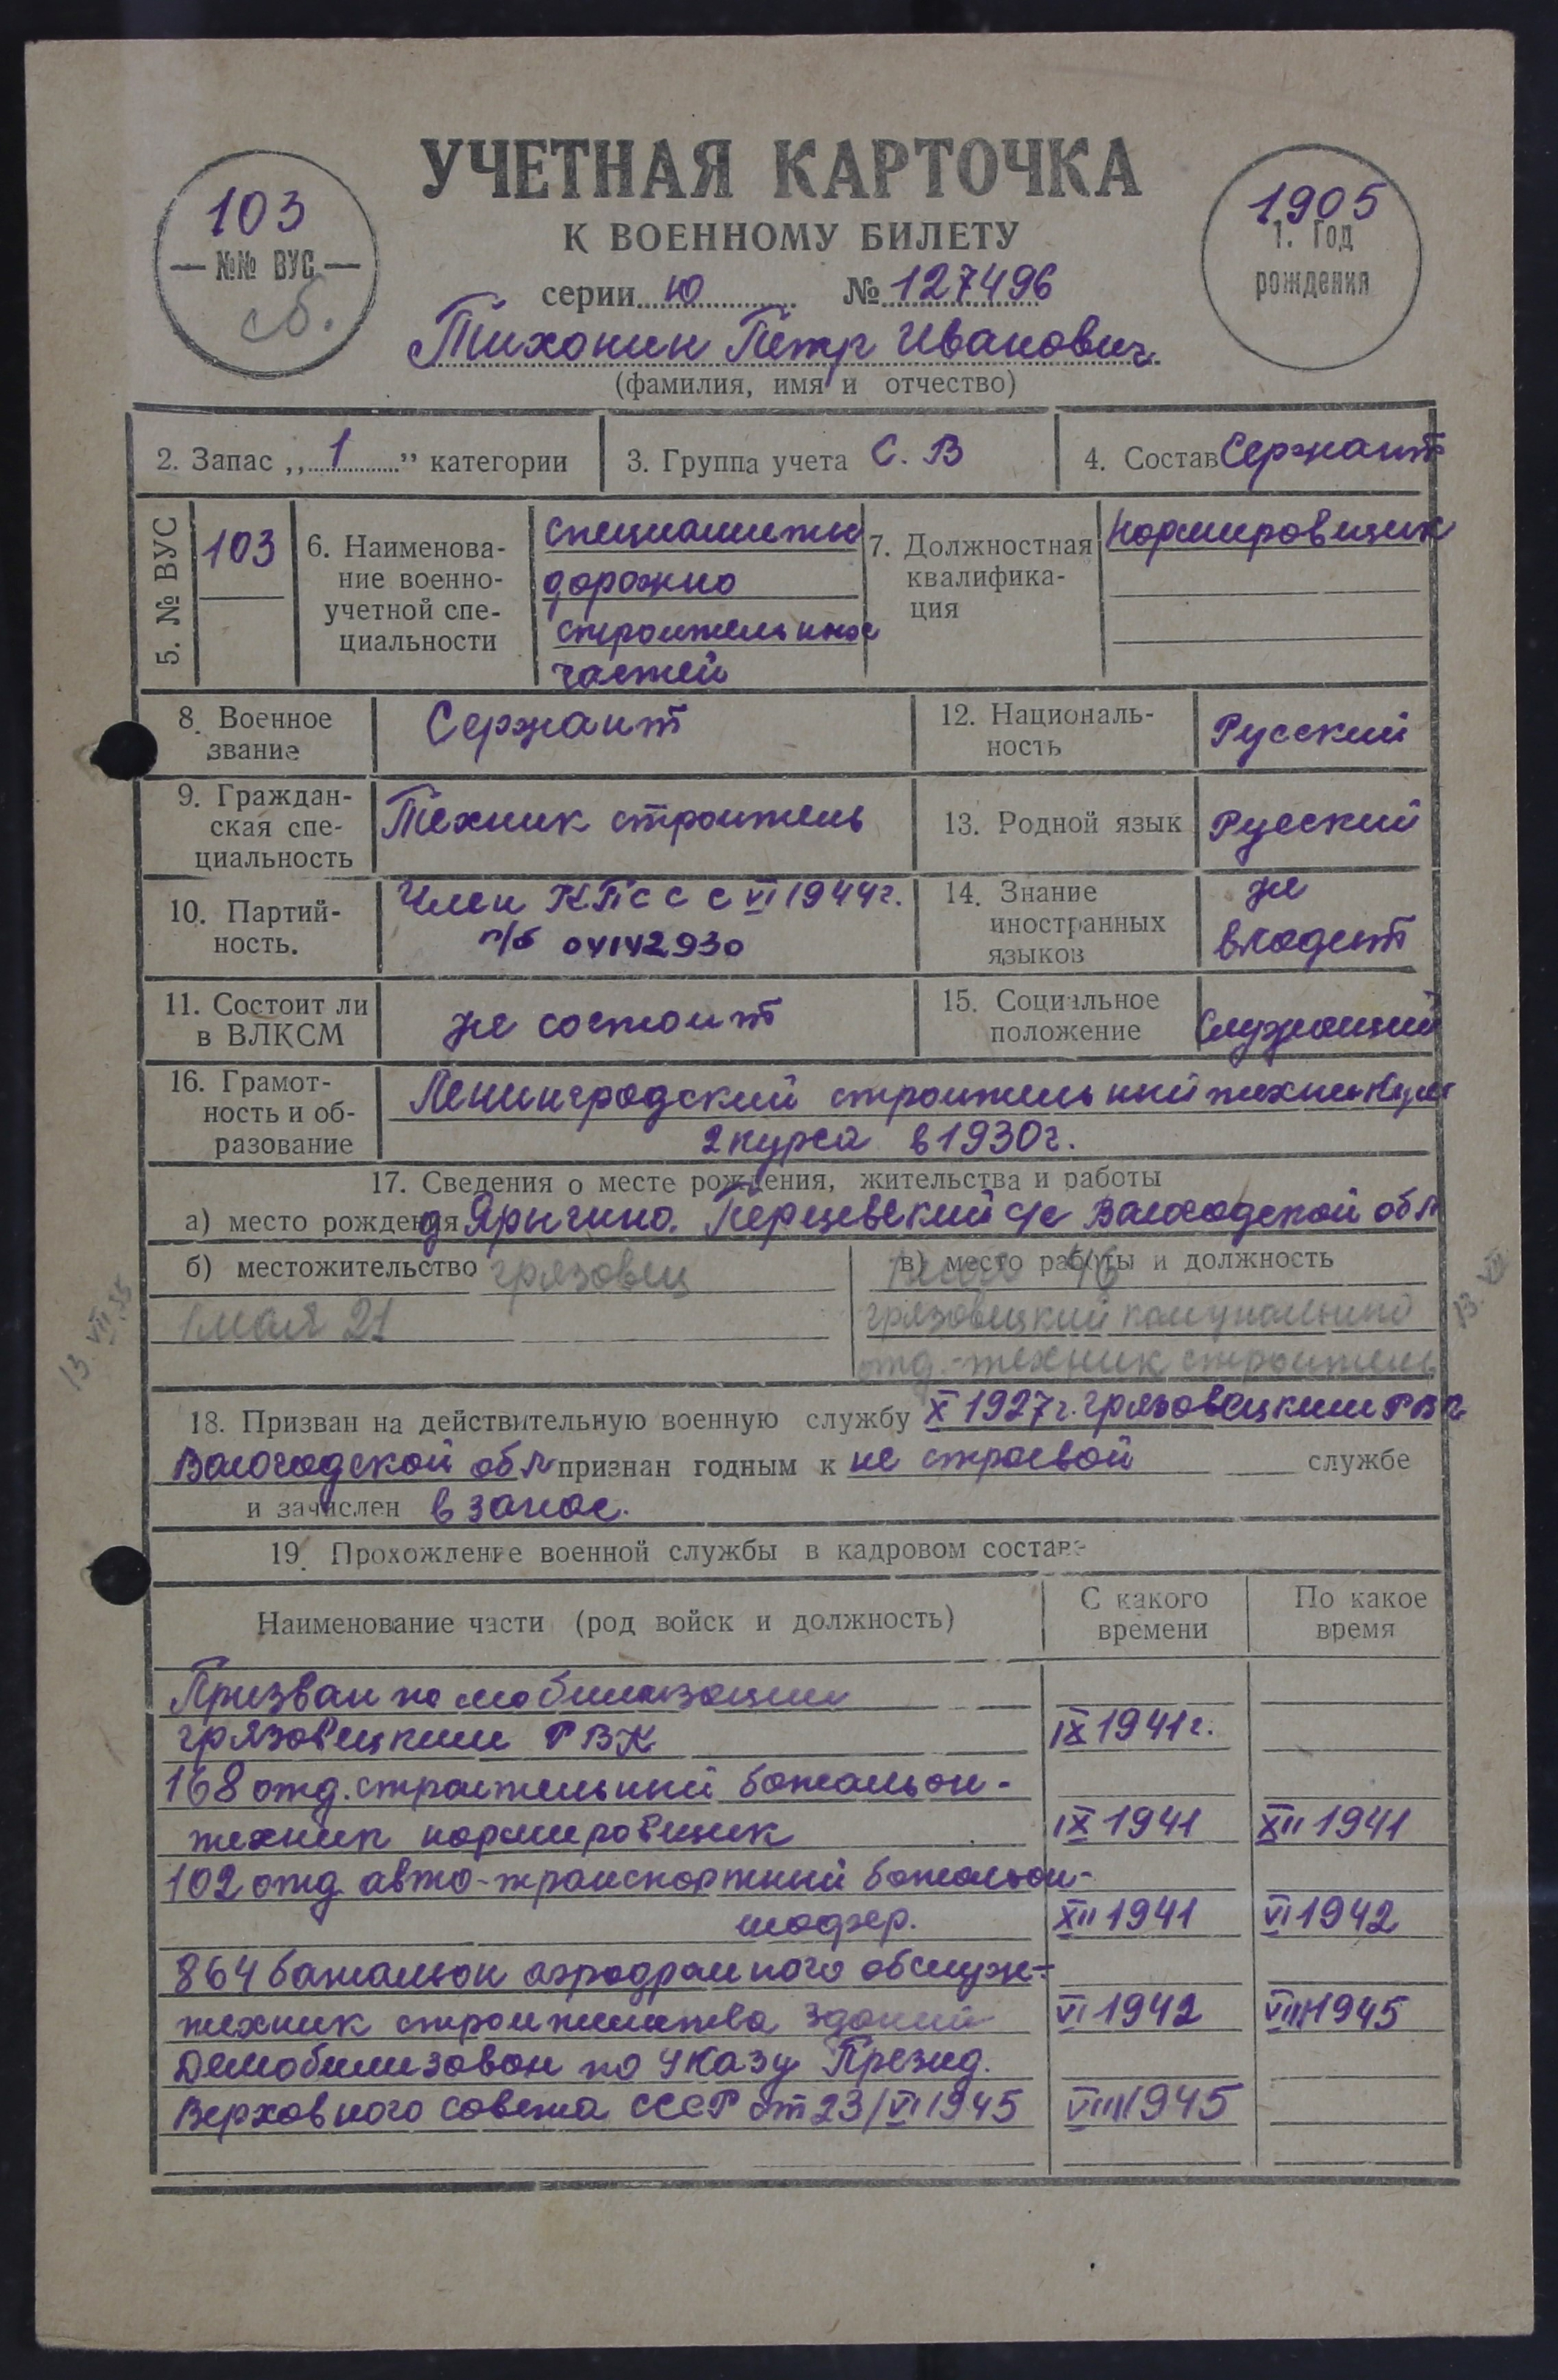 УЧЕТНАЯ КАРТОЧКА
К ВОЕННОМУ БИЛЕТУ
103
№№ ВУС
сб.
1905
1. Год
рождения
серии Ю № 127496
Тихонин Петр Иванович
(фамилия, имя и отчество)
2. Запас „1” категории
3. Группа учета С. В
4. Состав Сержант
5. № ВУС
103
6. Наименова-
ние военно-
учетной спе-
циальности
специалисты
дорожно
строительных
частей
7. Должностная
квалифика-
ция
Нормировщик
8. Военное
звание
Сержант
12. Националь-
ность
Русский
9. Граждан-
ская спе-
циальность
Техник строитель
13. Родной язык
Русский
10. Партий-
ность.
Член КПСС с VI 1944 г.
п/б 04142930
14. Знание
иностранных
языков
не
владеет
11. Состоит ли
в ВЛКСМ
не состоит
15. Социальное
положение
Служащий
16. Грамот-
ность и об-
разование
Ленинградский строительный техникум
2 курса в 1930 г.
17. Сведения о месте рождения, жительства и работы
а) место рождения д Ярыгино. Перцевский с/с Вологодской обл
б) местожительство грязовец
1 мая 21
в) место работы и должность
грязовецкий комунальный
отд.-техник строитель
13. VII 55
13. VII
18. Призван на действительную военную службу X 1927 г. грязовецким РВК
Вологодской обл признан годным к не строевой службе
и зачислен в запас.
19. Прохождение военной службы в кадровом составе
Наименование части (род войск и должность)
С какого
времени
По какое
время
Призван по мобилизации
грязовецким РВК IX 1941 г.
168 отд. строительный батальон-
техник нормировщик IX 1941 XII 1941
102 отд авто-транспортный батальон-
шофер. XII 1941 VI 1942
864 батальон аэродромного обслуж-
техник строительства зданий VI 1942 VIII 1945
Демобилизован по Указу Презид.
Верховного совета СССР от 23/VI 1945 VIII 1945